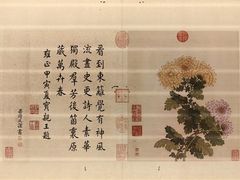 看到東籬覺有神風
流畫史更詩人素華
獨殿羣芳後箇裏原
藏萬卉春
雍正甲寅夏寶親王題